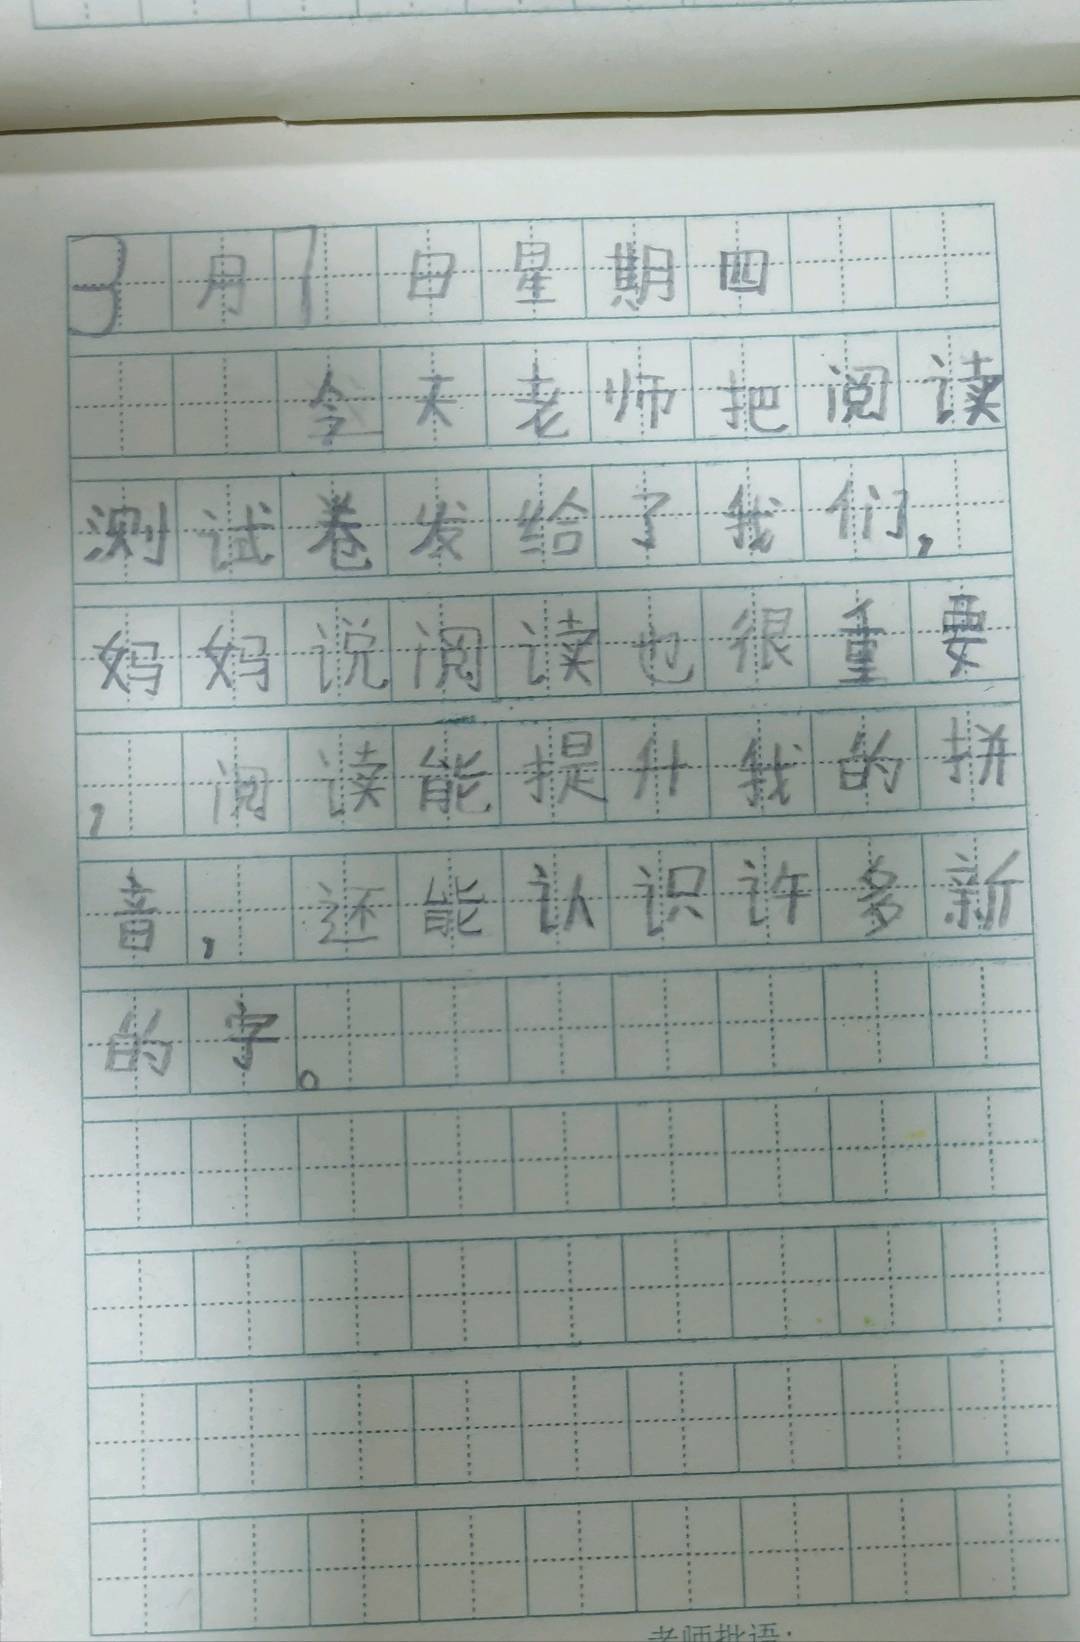 3月1日星期四
今天老师把阅读
测试卷发给了我们，
妈妈说阅读也很重要
，阅读能提升我的拼
音，还能认识许多新
的字。
老师批语：